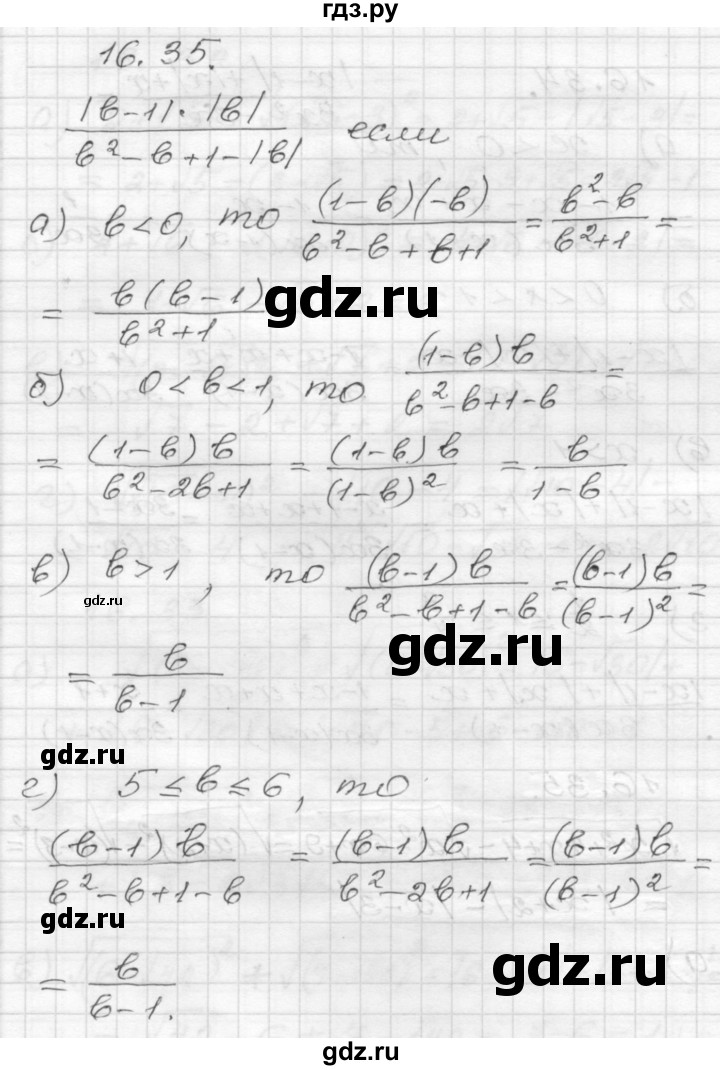 гдз.ру
16.35.
|b-1|·|b| / b²-b+1-|b| если
а) b<0, то (1-b)(-b) / b²-b+b+1 = b²-b / b²+1 =
= b(b-1) / b²+1
gdz.ru
б) 0<b<1, то (1-b)b / b²-b+1-b =
= (1-b)b / b²-2b+1 = (1-b)b / (1-b)² = b / 1-b
в) b>1, то (b-1)b / b²-b+1-b = (b-1)b / (b-1)² =
gdz.ru
gdz.ru
= b / b-1
gdz.ru
г) 5≤b≤6, то
(b-1)b / b²-b+1-b = (b-1)b / b²-2b+1 = (b-1)b / (b-1)² =
gdz.ru
= b / b-1.
gdz.ru
gdz.ru